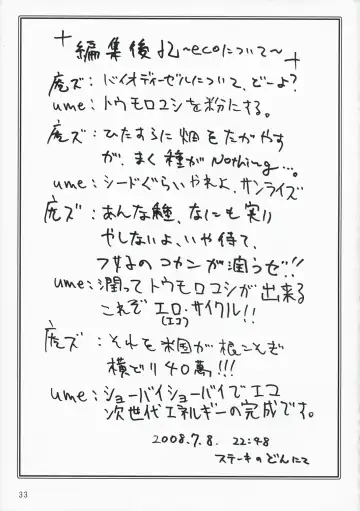 編集後記 ~ecoについて~
虎ズ：バイオディーゼルについて、どーよ?
ume：トウモロコシを粉にする。
虎ズ：ひたすらに畑をたがやす
が、まく種がNothing...。
ume：シードぐらいやれよ、サンライズ
虎ズ：あんな種、なにも実り
やしないよ、いや待て、
フ女子のコカンが潤うぜ!!
ume：潤ってトウモロコシが出来る
これぞエロ・サイクル!!
(エコ)
虎ズ：それを米国が根こそぎ
横どり40萬!!!
ume：ショーバイショーバイで、エコ
次世代エネルギーの完成です。
2008.7.8. 22:48
ステーキのどんにて
33